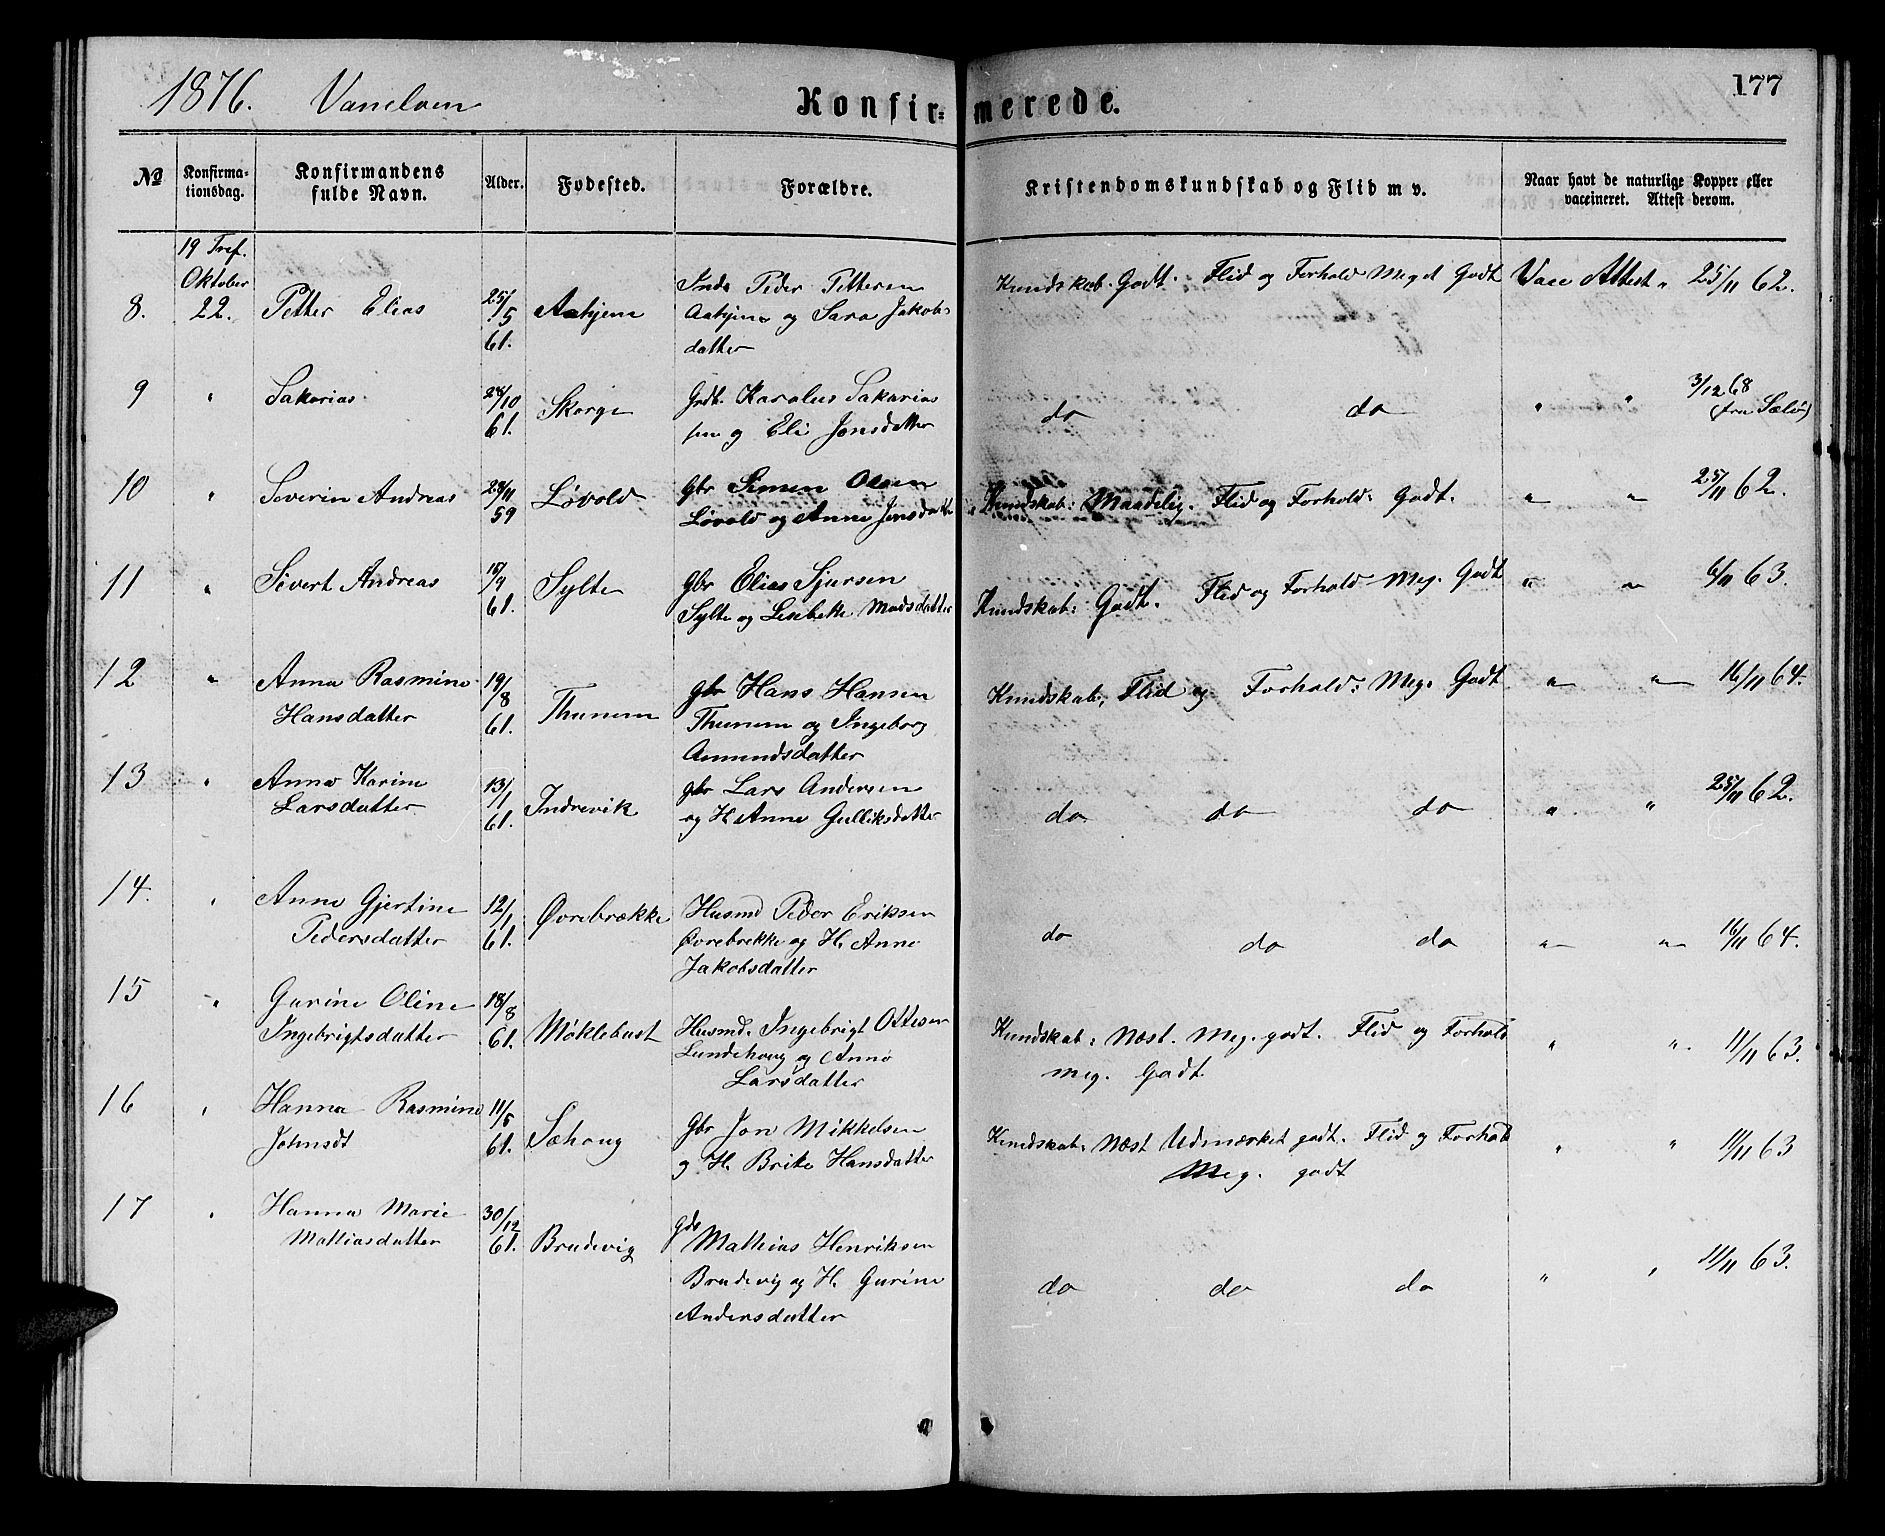 1876. Vanelven Konfir= merede. 177
No
Konfirma-
tionsdag.
Konfirmandens
fulde Navn.
Alder.
Fødested.
Forældre.
Kristendomskundskab og Flid m v.
Naar havt de naturlige Kopper eller
vaccineret. Attest derom.
19 Tref.
Oktober
8. 22. Petter Elias 25/5 61. Aahjem
Peder Pettersen
Aahjem og Sara Jakobs
datter
Kundskab. Godt. Flid og Forhold Meget Godt Vacc Attest " 25/11 62.
9 " Sakarias 28/10 61. Skorge
Gdb. Karolus Sakarias
sen og Eli Jonsdatter
do do " " 3/12 68
(fra Selø)
10 " Severin Andreas 28/11 59 Løvold
Gbr Simen Olsen
Løvold og Anne Jensdatter
Kundskab: Maadelig. Flid og Forhold: Godt. " " 25/11 62.
11 " Sivert Andreas 15/9 61. Sylte
Gbr Elias Sjursen
Sylte og Lisebette Madsdatter
Kundskab: Godt. Flid og Forhold Meg. Godt " " 6/11 63.
12 " Anna Rasmine
Hansdatter 19/8 61. Thunem
gbr Hans Hansen
Thunem og Ingeborg
Amundsdatter
Kundskab, Flid og Forhold: Meg. Godt " " 16/11 64.
13 " Anna Karine
Larsdatter 13/1 61. Indrevik
gbr Lars Andersen
og H. Anne Gulliksdatter
do do do " " 25/11 62.
14. " Anne Gjertine
Pedersdatter 12/1 61. Øvrebrække
Husmd Peder Eriksen
Øvrebrekke og H. Anne
Jakobsdatter
do do do " " 16/11 64.
15 " Gurine Oline
Ingebrigtsdatter 18/8 61. Møklebust
Husmd. Ingebrigt Ottesen
Lundehoug og Anne
Larsdatter
Kundskab: Næst. Meg. godt. Flid og Forhold
meg. Godt " " 11/11 63.
16 " Hanna Rasmine
Johnsdt 11/5 61. Sæhoug
Gbr Jon Mikkelsen
og H. Brite Hansdatter
Kundskab: Næst Udmærket godt. Flid og Forhold
Meg. godt " " 11/11 63
17 " Hanna Marie
Mattiasdatter 30/12 61. Brudevig
Gbr Mathias Henriksen
Brudevig og H. Gurine
Andersdatter
do do do " " 11/11 63.